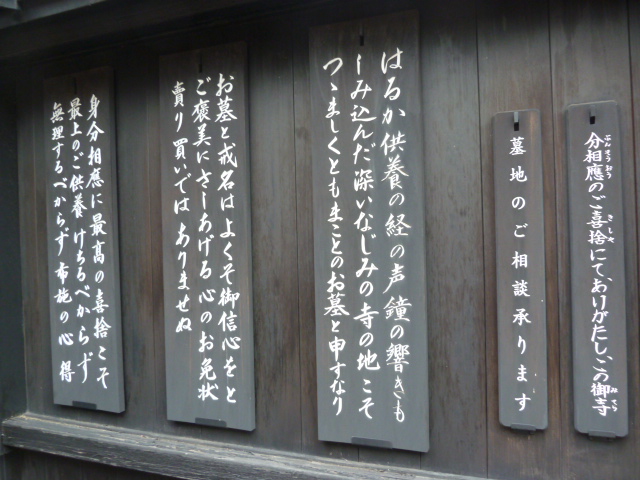 分相應のご喜捨にて、ありがたしこの御寺
ぶんそうおう
きしゃ
みてら
墓地のご相談承ります
はるか供養の経の声鐘の響きも
しみ込んだ深いなじみの寺の地こそ
つゝましくともまことのお墓と申すなり
お墓と戒名はよくぞ御信心をと
ご褒美にさしあげる心のお免状
賣り買いでは ありませぬ
身分相應に最高の喜捨こそ
最上のご供養 けちるべからず
無理するべからず 布施の心得